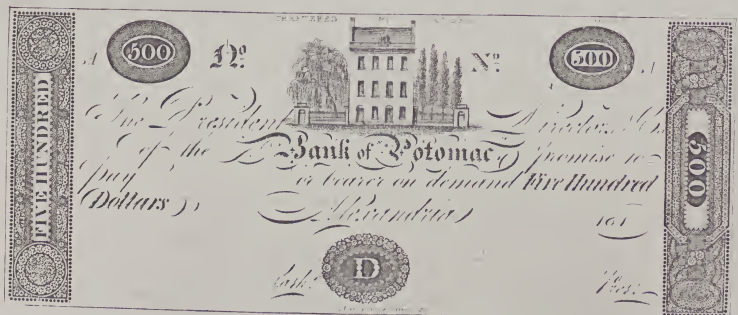 CHARTERED BY
A 500 Nº Nº 500 A
The President Directors &
of the Bank of Potomac promise to
pay or bearer on demand Five Hundred
Dollars
Alexandria 181
Cash.r D Pres.t
FIVE HUNDRED
500